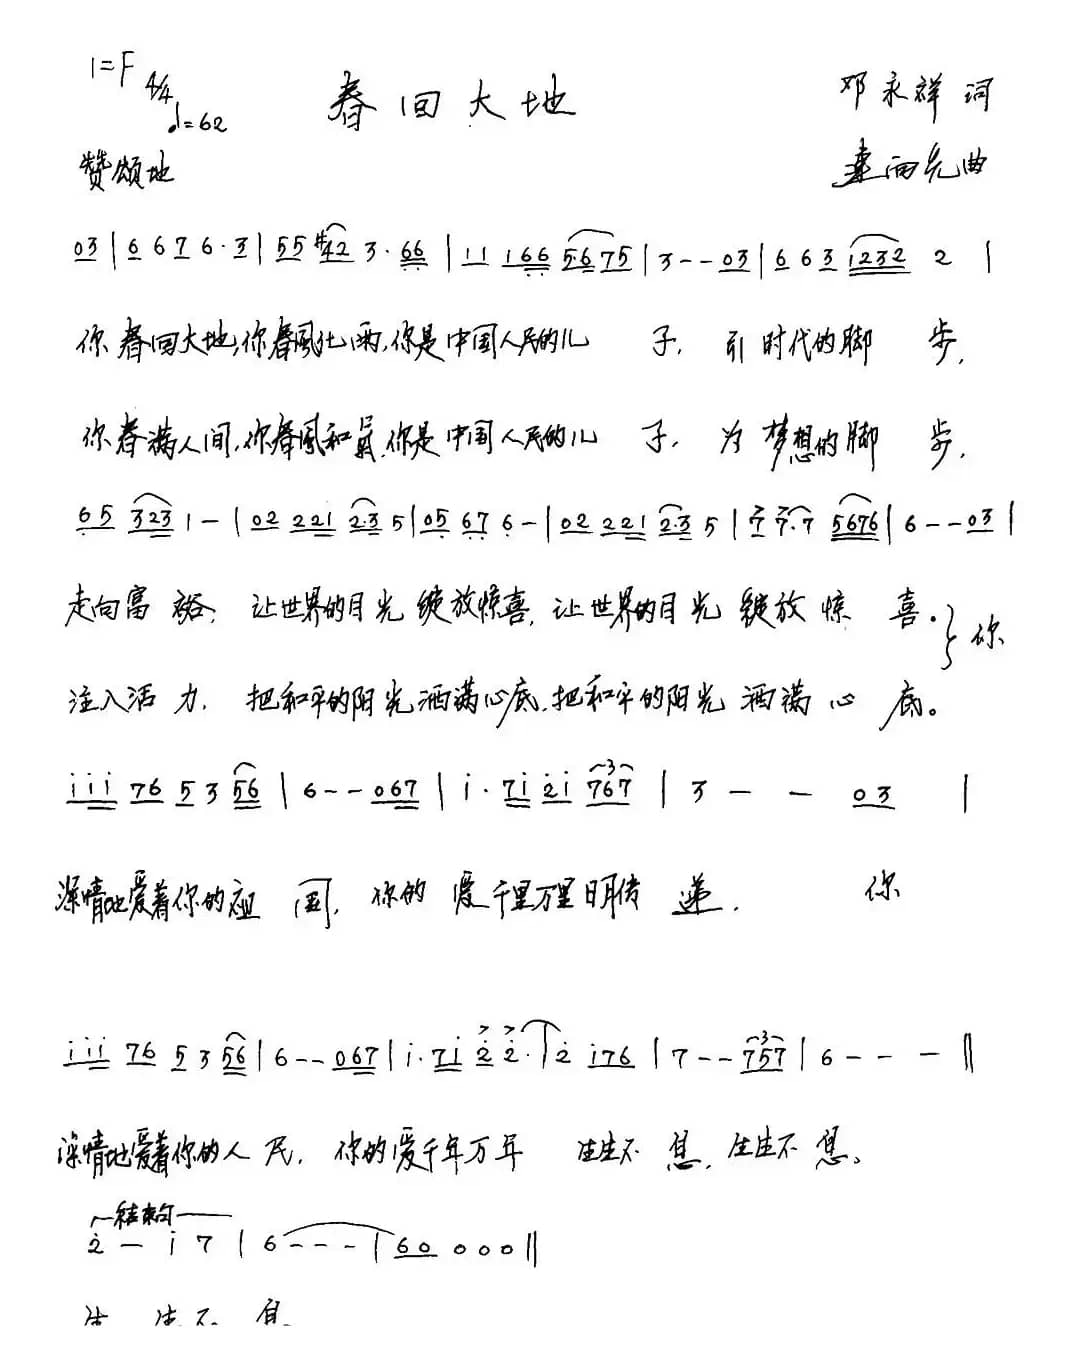 1=F 4/4 ♩=62
春回大地
邓永祥 词
赞颂地
雨先曲
03 | 6 6 7 6·3 | 55 #42 3·66 | 11 166 5·675 | 3--03 | 6 6 3 1232 2 |
你春回大地,你春风化雨,你是中国人民的儿 子, 引时代的脚 步,
你春满人间,你春风和煦,你是中国人民的儿 子, 为梦想的脚 步,
65 323 1- | 02 221 2·3 5 | 05 67 6- | 02 221 2·3 5 | 7 7·7 5676 | 6--03 |
走向富 裕; 让世界的目光 绽放惊喜, 让世界的目光 绽放 惊 喜. } 你
注入活 力, 把和平的阳光洒满心底,把和平的阳光 洒满 心 底。
i i i 76 5 3 56 | 6--067 | i·7i 2i 767 | 3 - - 03 |
深情地爱着你的祖 国, 你的 爱千里万里 传 递, 你
i i i 76 5 3 56 | 6--067 | i·7i 2 2· | 2 i76 | 7--757 | 6--- ‖
深情地爱着你的人 民, 你的爱千年万年 生生不 息, 生生不 息。
结束句
2 - i 7 | 6--- | 60 0 0 0 ‖
生 生不 息